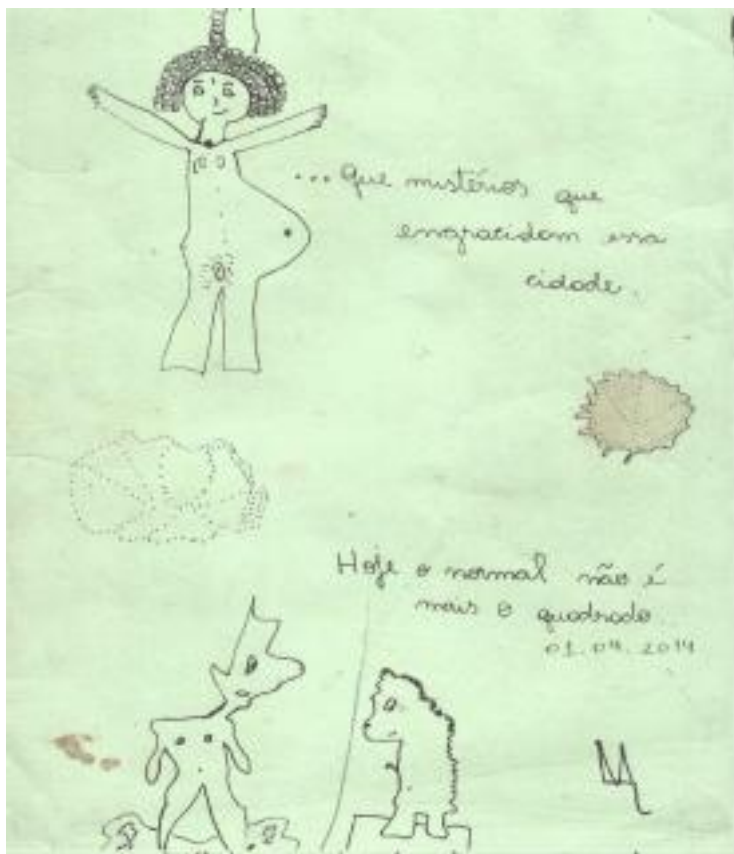 ... Que mistérios que
engravidam essa
cidade.
Hoje o normal não é
mais o quadrado.
01.04.2014